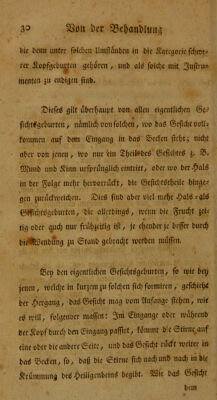 30 Von der Behandlung
die denn unter solchen Umständen in die Kategorie schwe-
rer Kopfgeburten gehören, und als solche mit Instru-
menten zu endigen sind.
Dieses gilt überhaupt von allen eigentlichen Ge-
sichtsgeburten, nämlich von solchen, wo das Gesicht voll-
kommen auf dem Eingang in das Becken steht; nicht
aber von jenen, wo nur ein Theil des Gesichts z. B.
Mund und Kinn ursprünglich eintritt, oder wo der Hals
in der Folge mehr hervorrückt, die Gesichtstheile hinge-
gen zurückweichen. Dies sind aber viel mehr Hals- als
Gesichtsgeburten, die allerdings, wenn die Frucht zei-
tig oder auch nur frühzeitig ist, je ehender je besser durch
die Wendung zu Stand gebracht werden müssen.
Bey den eigentlichen Gesichtsgeburten, so wie bey
jenen, welche in kurzem zu solchen sich formiren, geschieht
der Hergang, das Gesicht mag vom Anfange stehen, wie
es will, folgender massen: Im Eingange oder während
der Kopf durch den Eingang passirt, kömmt die Stirne auf
eine oder die andere Seite, und das Gesicht rückt weiter in
das Becken, so, daß die Stirne sich nach und nach in die
Krümmung des Heiligenbeins begibt. Wie das Gesicht
dem